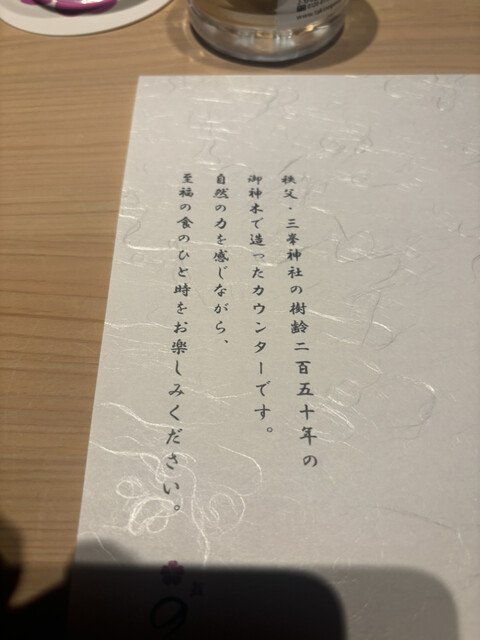 秩父・三峯神社の樹齢二百五十年の
御神木で造ったカウンターです。
自然の力を感じながら、
至福の食のひと時をお楽しみください。
の